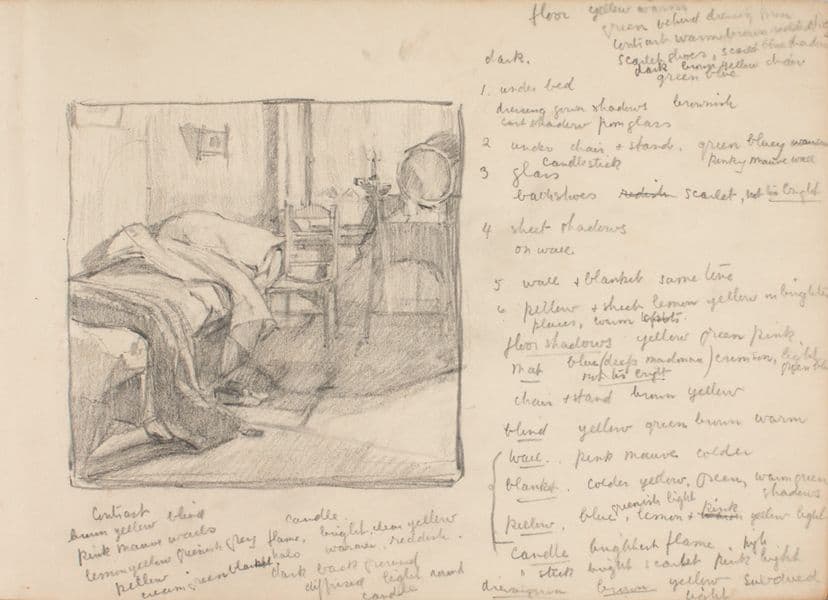 floor yellow
green behind dressing gown
contrast warm brown
scarlet shoes, scarlet
dark brown yellow chair
green blue
dark.
1. under bed
dressing gown shadows brownish
cast shadow from glass
2 under chair + stand. green bluey
candlestick pinky mauve wall
3 glass
backshoes scarlet, not too bright
4 sheet shadows
on wall
5 wall + blanket same tone
6 pillow + sheet lemon yellow in brightest
places, warm
floor shadows yellow green pink.
mat blue (deep madonna) crimson, light
not too bright green blue
chair + stand brown yellow
blind yellow green brown warm
wall. pink mauve colder
blanket. colder yellow. green, warm green
greenish light shadows
pillow, blue, lemon + pink yellow light
candle brightest flame,
" stick bright scarlet pink light
dressing gown brown yellow subdued
light
Contrast
brown yellow blind
pink mauve walls
lemon yellow greenish grey
pillow
cream green blanket
candle.
flame, bright, clear yellow
halo warmer, reddish.
dark back ground
diffused light round
candle